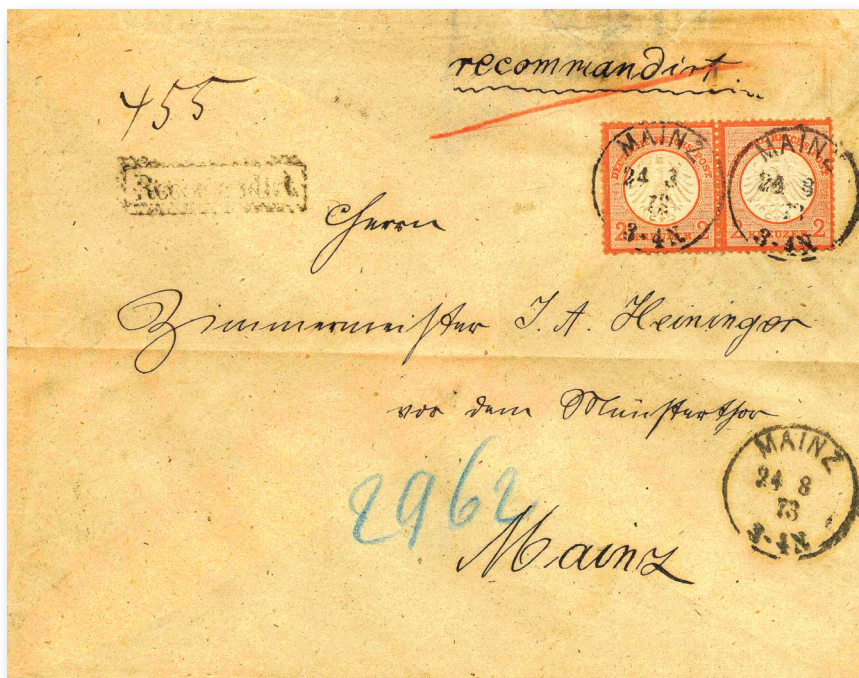 recommandirt
455
Recommandirt
MAINZ
24 8
73
3-4N
MAINZ
24 8
73
3-4N
2 KREUZER 2
2 KREUZER 2
Herrn
Zimmermeister J. A. Heininger
vor dem Münsterthor
MAINZ
24 8
73
3-4N
2962
Mainz